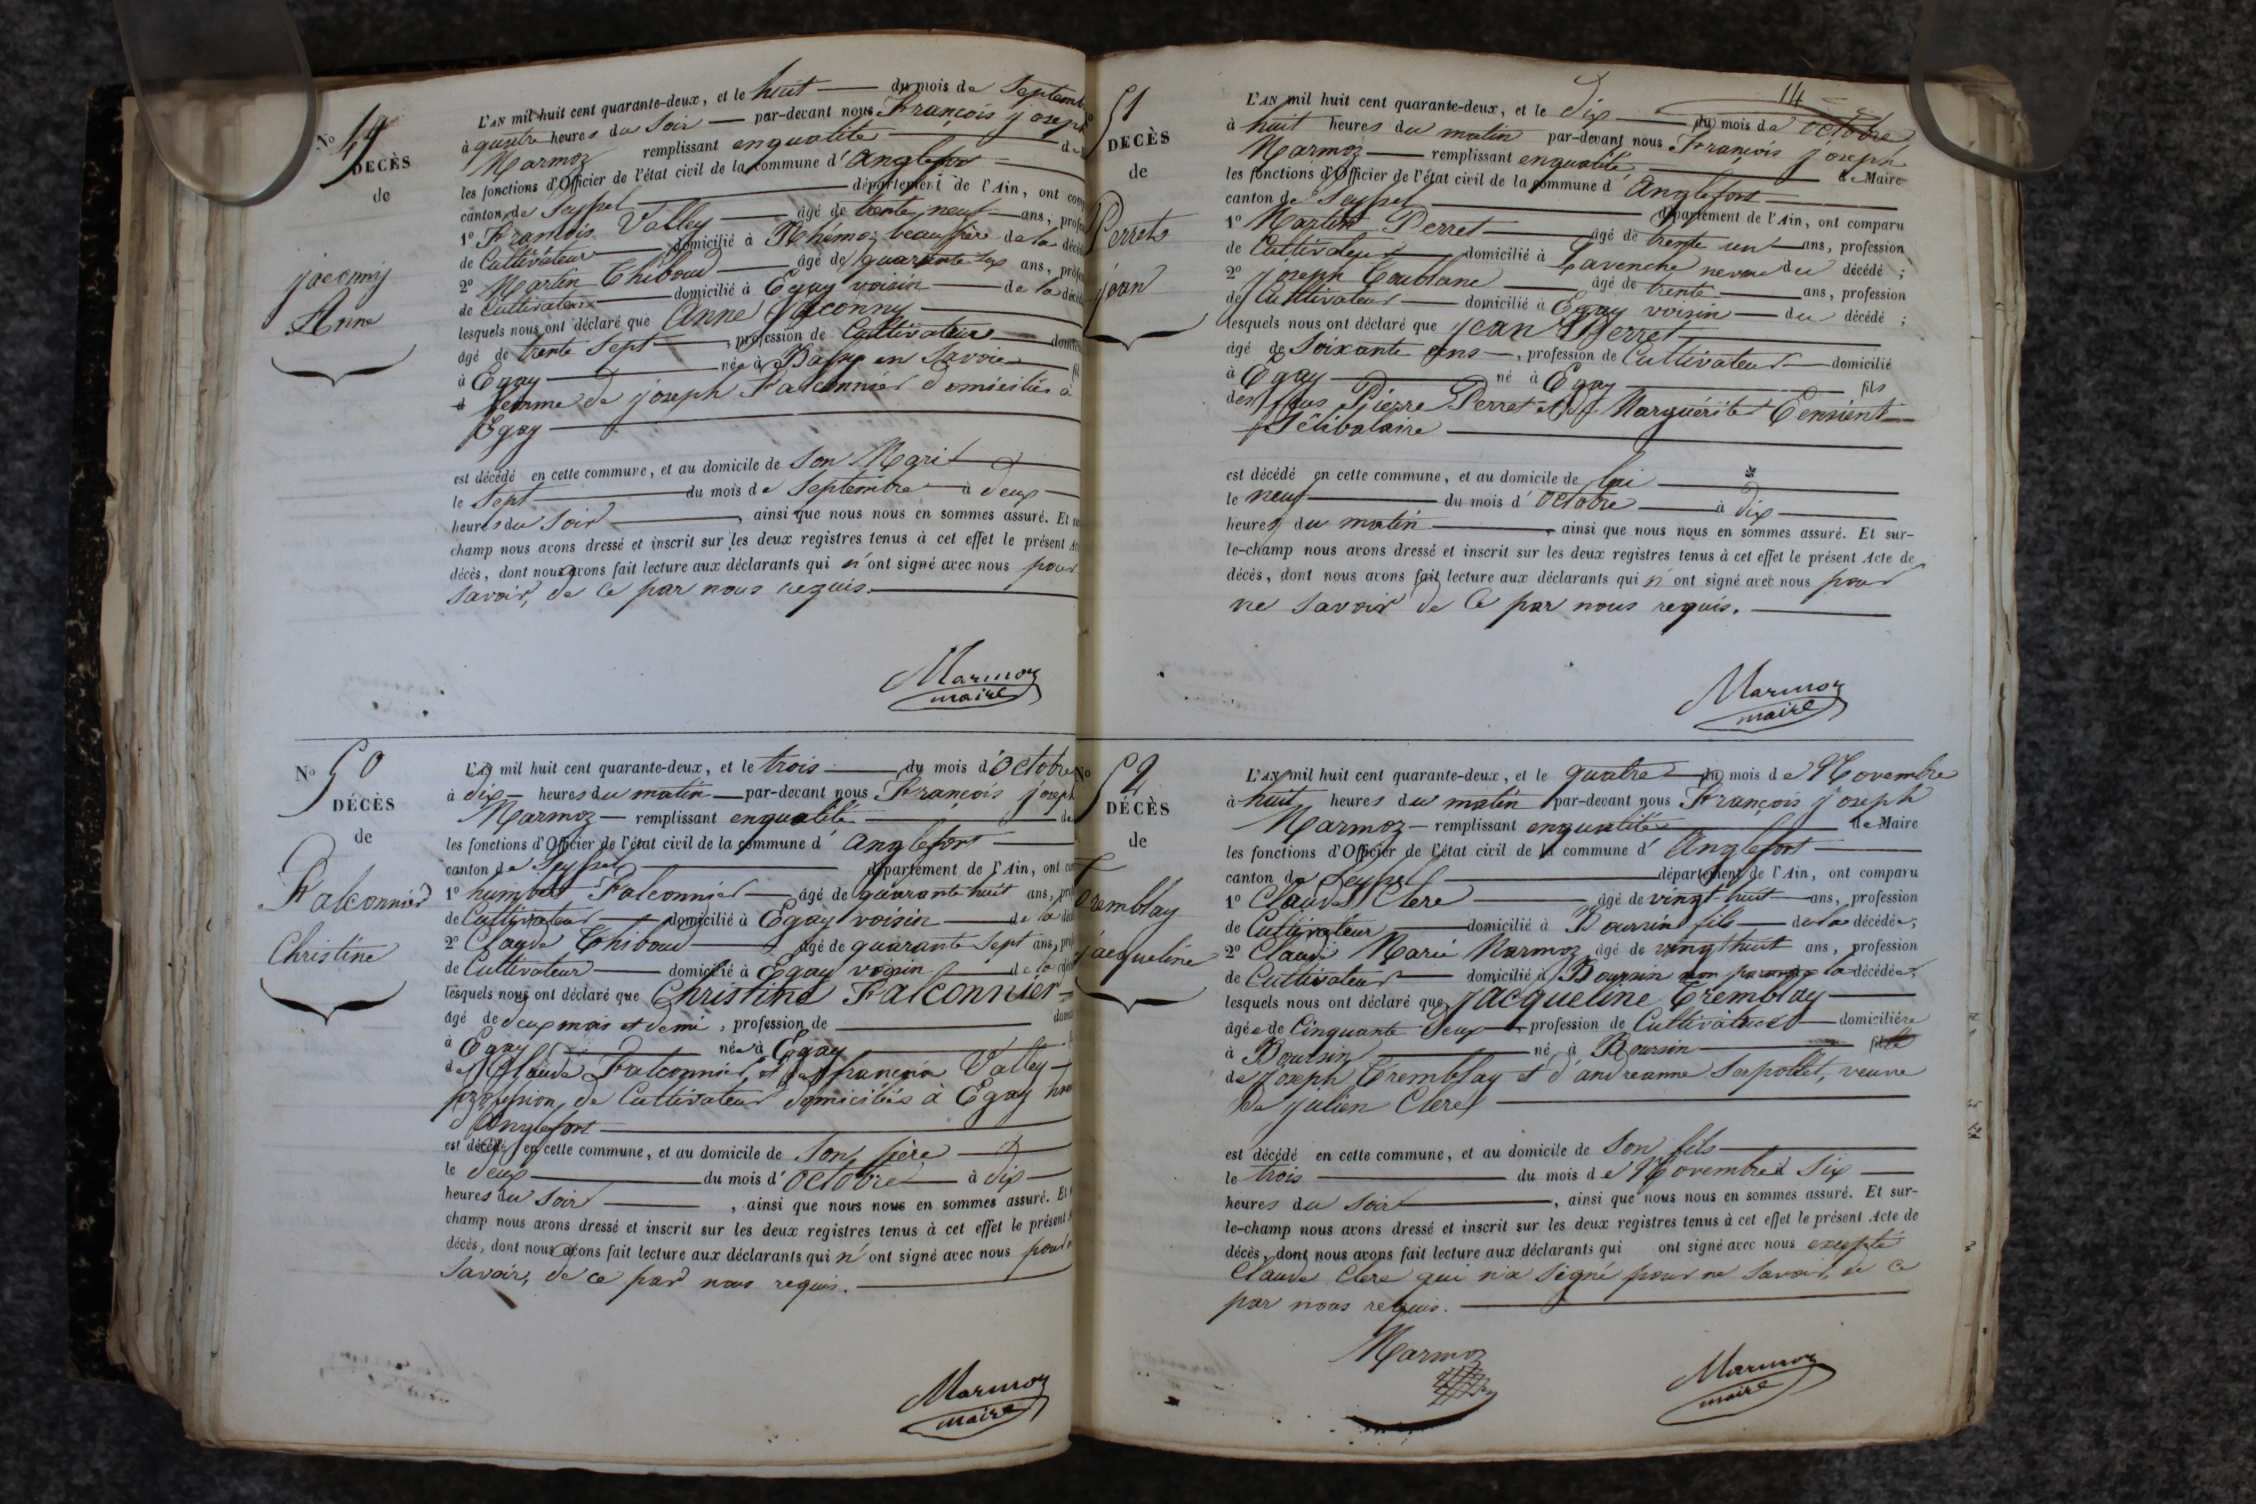 No 49
DÉCÈS
de
jaconnis
Anne
L'AN mil huit cent quarante-deux, et le huit du mois de Septemb
à quatre heures du Soir par-devant nous François joseph
Marmoz remplissant enqualité de
les fonctions d'Officier de l'état civil de la commune d'Anglefort
canton de Seyssel département de l'Ain, ont com
1º François Valley âgé de trente neuf ans, profes
de Cultivateur domicilié à Rhémoz beaufrère de la décéd
2º Martin Thiboud âgé de quarante six ans, profes
de Cultivateur domicilié à Egay voisin de la décéd
lesquels nous ont déclaré que Anne Jaconny
âgé de trente Sept, profession de Cultivateur domici
à Egay née à Bassy en Savoie fil
d femme de joseph Falconnier domiciliés à
Egay
est décédé en cette commune, et au domicile de Son Mari
le Sept du mois de Septembre à deux
heures du Soir, ainsi que nous nous en sommes assuré. Et
champ nous avons dressé et inscrit sur les deux registres tenus à cet effet le présent Ac
décès, dont nous avons fait lecture aux déclarants qui n'ont signé avec nous pour
Savoir, de ce par nous requis.
Marmoz
maire
No 50
DÉCÈS
de
Falconnier
Christine
L'AN mil huit cent quarante-deux, et le trois du mois d'Octobre
à dix heures du matin par-devant nous François joseph
Marmoz remplissant enqualité de
les fonctions d'Officier de l'état civil de la commune d'Anglefort
canton de Seyssel département de l'Ain, ont com
1º humbert Falconnier âgé de quarante huit ans, pro
de Cultivateur domicilié à Egay voisin de la déc
2º Claude Thiboud âgé de quarante Sept ans, pro
de Cultivateur domicilié à Egay voisin de la déc
lesquels nous ont déclaré que Christine Falconnier
âgé de deux mois et demi, profession de domi
à Egay née à Egay
de Claude Falconnier et de françoise Valley
profession de Cultivateur domiciliés à Egay ham
d'Anglefort
est décédé en cette commune, et au domicile de Son père
le deux du mois d'Octobre à dix
heures du Soir, ainsi que nous nous en sommes assuré. Et
champ nous avons dressé et inscrit sur les deux registres tenus à cet effet le présent A
décès, dont nous avons fait lecture aux déclarants qui n'ont signé avec nous pour
Savoir, de ce par nous requis.
Marmoz
maire
14
51
DÉCÈS
de
Perret
jean
L'AN mil huit cent quarante-deux, et le dix du mois de octobre
à huit heures du matin par-devant nous François joseph
Marmoz remplissant enqualité de Maire
les fonctions d'Officier de l'état civil de la commune d'Anglefort
canton de Seyssel département de l'Ain, ont comparu
1º Martin Perret âgé de trente un ans, profession
de Cultivateur domicilié à Lavenche neveu du décédé ;
2º joseph Coublanc âgé de trente ans, profession
de Cultivateur domicilié à Egay voisin du décédé ;
lesquels nous ont déclaré que jean Perret
âgé de Soixante ans, profession de Cultivateur domicilié
à Egay né à Egay fils
des feus Pierre Perret et de Marguérite
Célibataire
est décédé en cette commune, et au domicile de lui
le neuf du mois d'Octobre à dix
heures du matin, ainsi que nous nous en sommes assuré. Et sur-
le-champ nous avons dressé et inscrit sur les deux registres tenus à cet effet le présent Acte de
décès, dont nous avons fait lecture aux déclarants qui n'ont signé avec nous pour
ne Savoir de Ce par nous requis.
Marmoz
maire
No 52
DÉCÈS
de
Tremblay
jacqueline
L'AN mil huit cent quarante-deux, et le quatre du mois de Novembre
à huit heures du matin par-devant nous François joseph
Marmoz remplissant enqualité de Maire
les fonctions d'Officier de l'état civil de la commune d'Anglefort
canton de Seyssel département de l'Ain, ont comparu
1º Claude Clerc âgé de vingt huit ans, profession
de Cultivateur domicilié à Boursin fils de la décédée;
2º Claude Marie Marmoz âgé de vingt huit ans, profession
de Cultivateur domicilié à Boursin non parent de la décédée;
lesquels nous ont déclaré que jacqueline Tremblay
âgée de Cinquante deux, profession de Cultivatrice domiciliée
à Boursin né à Boursin fille
de joseph Tremblay et d'andreanne Serpollet, veuve
de julien Clerc
est décédé en cette commune, et au domicile de Son fils
le trois du mois de Novembre à Six
heures du Soir, ainsi que nous nous en sommes assuré. Et sur-
le-champ nous avons dressé et inscrit sur les deux registres tenus à cet effet le présent Acte de
décès, dont nous avons fait lecture aux déclarants qui ont signé avec nous excepté
Claude Clerc qui n'a Signé pour ne Savoir, de ce
par nous requis.
Marmoz
Marmoz
maire